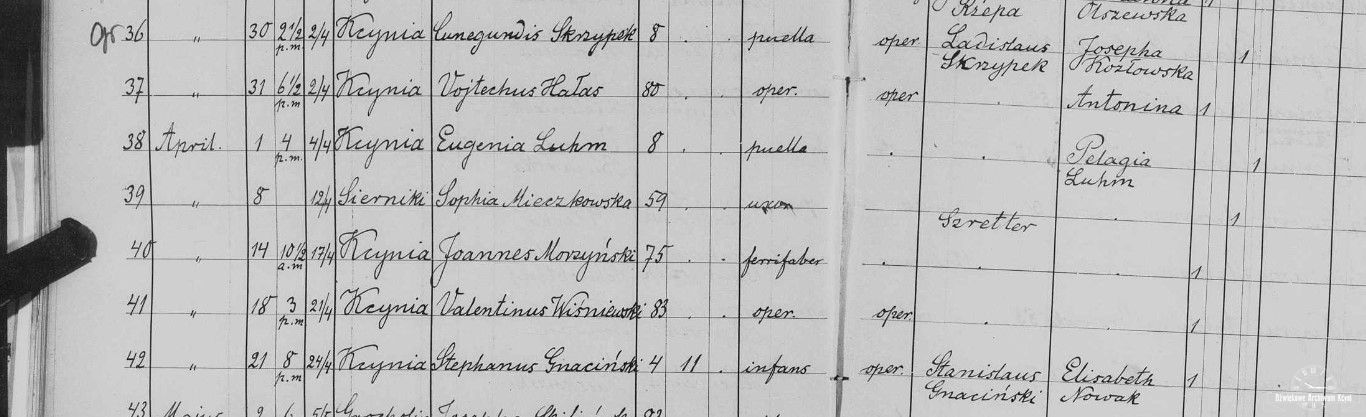 Rzepa Olszewska 1
gr 36 " 30 9 1/2 p.m 2/4 Kcynia Cunegundis Skrzypek 8 . . puella oper Ladislaus Skrzypek Josepha Kozłowska 1
37 " 31 6 1/2 p.m 2/4 Kcynia Vojtechus Hałas 80 . . oper. oper . Antonina 1
38 April. 1 4 p.m 4/4 Kcynia Eugenia Luhm 8 . . puella . . Pelagia Luhm 1
39 " 8 12/4 Sierniki Sophia Mieczkowska 59 . . uxor Szretter . 1
40 " 14 10 1/2 a.m 17/4 Kcynia Joannes Morzyński 75 . . ferrifaber . . . 1
41 " 18 3 p.m 21/4 Kcynia Valentinus Wiśniewski 83 . . oper. oper. . . 1
42 " 21 8 p.m 24/4 Kcynia Stephanus Gnaciński 4 11 . infans oper. Stanislaus Gnaciński Elisabeth Nowak 1
43 Majus 2
Dźwiękowe Archiwum Kcyni